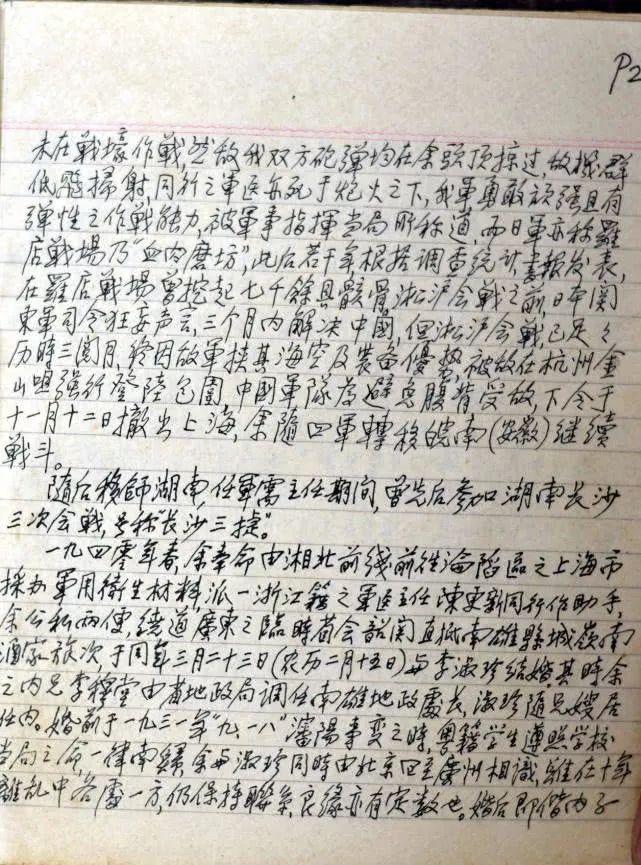 P2
未在戰壕作戰,然敌我双方砲弹均在余頭頂掠过,敌機群
低飛掃射,同行之軍医亦死于炮火之下,我軍勇敢頑强且有
弹性之作戰能力,被軍事指揮当局所称道,而日軍亦称羅
店戰場乃"血肉磨坊",此后若干年根据調查統計,書報发表,
在羅店戰場曾挖起七千餘具骸骨,淞沪会戰之前,日本関
東軍司令狂妄声言,三个月内解决中國,但淞沪会戰,已足足
历時三閱月,终因敌軍挟其海空及装备優势,被敌在杭州金
山咀强行登陸包圍,中國軍隊為避免腹背受敌,下令于
十一月十二日撤出上海,余隨四軍轉移皖南(安徽)继續
戰斗。
隨后移師湖南,任軍需主任期间,曾先后参加湖南長沙
三次会戰,号称"長沙三捷"。
一九四零年春,余奉命由湘北前线前往淪陷區之上海市
採办軍用衛生材料,派一浙江籍之軍医主任陳更新同行作助手,
余公私两便,绕道廣東之臨時省会韶関直抵南雄縣城嶺南
酒家旅次,于同年三月二十三日(农历二月十五日)与李淑珍结婚,其時余
之内兄李穆堂由省地政局調任南雄地政處長,淑珍隨兄嫂居
任内。婚前于一九三一年"九、一八"瀋陽事变之時,粤籍学生遵照学校
当局之命,一律南歸,余与淑珍同時由北京回至廣州相識,雖在十年
離乱中各處一方,仍保持聯系,良緣亦有定数也。婚后即偕内子